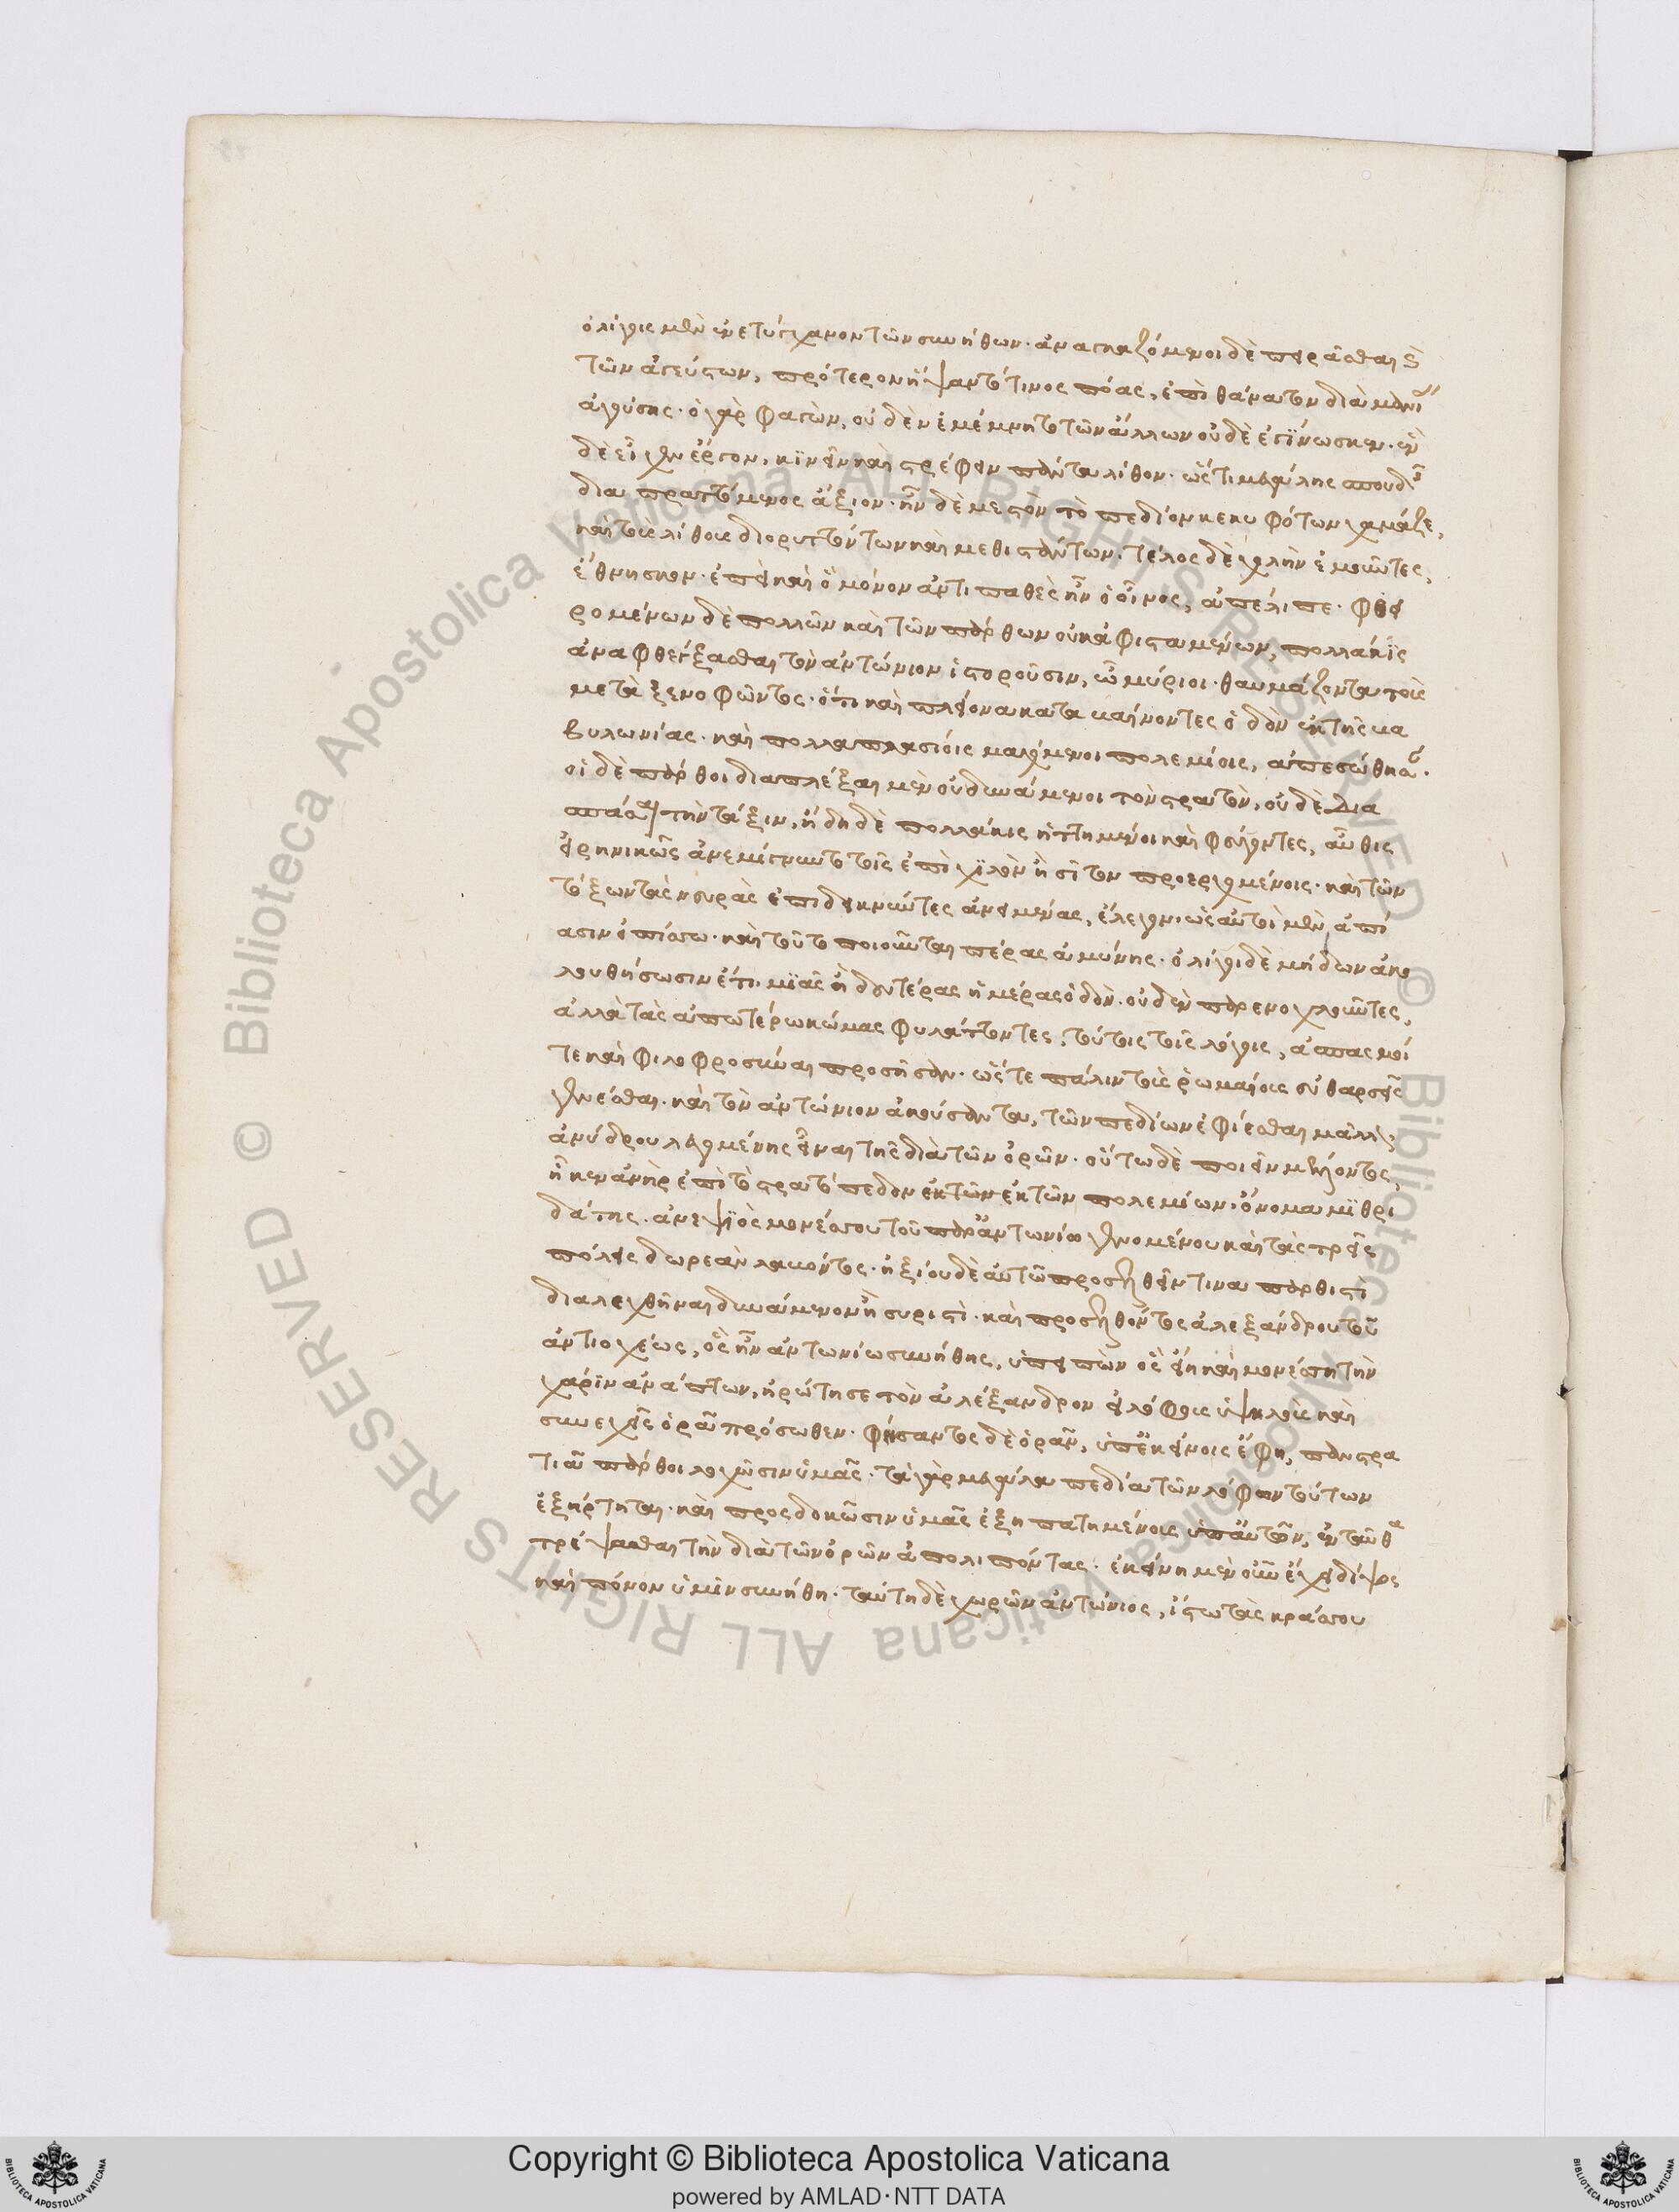 ὀλίγοις μὲν ἐνετύγχανον τῶν συνήθων. ἀναγκαζόμενοι δὲ πειρᾶσθαι καὶ
τῶν ἀγεύστων, πρότερον ἥψαντό τινος πόας, ἐπὶ θάνατον διὰ μανίας
ἀγούσης. ὁ γὰρ φαγὼν, οὐδὲν ἐμέμνητο τῶν ἄλλων οὐδὲ ἐγίνωσκεν. ἓν
δὲ εἶχεν ἔργον, κινεῖν καὶ στρέφειν πάντα λίθον. ὥς τι μεγάλης σπουδῆς
διαπραττόμενος ἄξιον. ἦν δὲ μεστὸν τὸ πεδίον κεκυφότων χαμάζε,
καὶ τοὺς λίθους διορυττόντων καὶ μεθιστάντων. τέλος δὲ χολὴν ἐμοῦντες,
ἔθνησκον. ἐπεὶ καὶ ὃ μόνον ἀντιπαθὲς ἦν ὁ οἶνος, ἀπέλιπε. φθει
ρομένων δὲ πολλῶν καὶ τῶν πάρθων οὐκ ἀφισταμένων, πολλάκις
ἀναφθέγξασθαι τὸν ἀντώνιον ἱστοροῦσιν, ὦ μύριοι. θαυμάζοντα τοὺς
μετὰ ξενοφῶντος. ὅτι καὶ πλείονα καταβαίνοντες ὁδὸν ἐκ τῆς βα
βυλωνίας. καὶ πολλαπλασίοις μαχόμενοι πολεμίοις, ἀπεσώθησαν.
οἱ δὲ πάρθοι διαπλέξαι μὲν οὐ δυνάμενοι τὸν στρατὸν, οὐδὲ δια
σπάσαι τὴν τάξιν, ἤδη δὲ πολλάκις ἡττημένοι καὶ φυγόντες, αὖθις
εἰρηνικῶς ἀνεμίγνυντο τοῖς ἐπὶ χιλὸν ἢ σῖτον προερχομένοις. καὶ τῶν
τόξων τὰς νευρὰς ἐπιδεικνύντες ἀνειμένας, ἔλεγον. ὡς αὐτοὶ μὲν ἀπί
ασιν ὀπίσω. καὶ τοῦτο ποιοῦνται πέρας ἀμύνης. ὀλίγοι δὲ μήδων ἀκο
λουθήσωσιν ἔτι μιᾶς ἢ δευτέρας ἡμέρας ὁδὸν. οὐδὲν παρενοχλοῦντες,
ἀλλὰ τὰς ἀπωτέρω κώμας φυλάττοντες. τούτοις τοῖς λόγοις, ἀσπασμοί
τε καὶ φιλοφροσύναι προσῆσαν. ὥστε πάλιν τοὺς ῥωμαίους εὐθαρσεῖς
γενέσθαι. καὶ τὸν ἀντώνιον ἀκούσαντα, τῶν πεδίων ἐφίεσθαι μᾶλλον,
ἀνύδρου λεγομένης εἶναι τῆς διὰ τῶν ὀρῶν. οὕτω δὲ ποιεῖν μέλλοντος,
ἧκεν ἀνὴρ ἐπὶ τὸ στρατόπεδον ἐκ τῶν ἐκ τῶν πολεμίων. ὄνομα μιθρι
δάτης. ἀνεψιὸς μοναίσου τοῦ παρ' ἀντωνίω γενομένου καὶ τὰς τρεῖς
πόλεις δωρεὰν λαβόντος. ἠξίου δὲ αὐτῶ προσελθεῖν τινα παρθιστὶ
διαλεχθῆναι δυνάμενον ἢ συριστὶ. καὶ προσελθόντος ἀλεξάνδρου τοῦ
ἀντιοχέως, ὃς ἦν ἀντωνίω συνήθης, ὑπειπὼν ὃς εἴη καὶ μοναίση τὴν
χάριν ἀνάπτων, ἠρώτησε τὸν ἀλέξανδρον εἰ λόφους ὑψηλοὺς καὶ
συνεχεῖς ὁρᾶ πρόσωθεν. φήσαντος δὲ ὁρᾶν, ὑπ' ἐκείνοις ἔφη, πανστρα
τιᾶ πάρθοι λοχῶσιν ὑμᾶς. τὰ γὰρ μεγάλα πεδία τῶν λόφων τούτων
ἐξήρτηται. καὶ προσδοκῶσιν ὑμᾶς ἐξηπατημένους ὑπ' αὐτῶν, ἐνταῦθα
τρέψασθαι τὴν διὰ τῶν ὀρῶν ἀπολιπόντας. ἐκείνη μὲν οὖν ἔχει δίψος
καὶ πόνον ὑμῖν συνήθη. ταύτη δὲ χωρῶν ἀντώνιος, ἴστω τὰς κράσσου